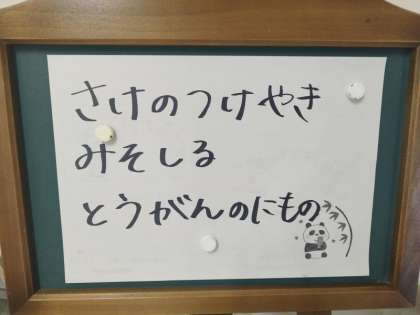 さけのつけやき
みそしる
とうがんのにもの